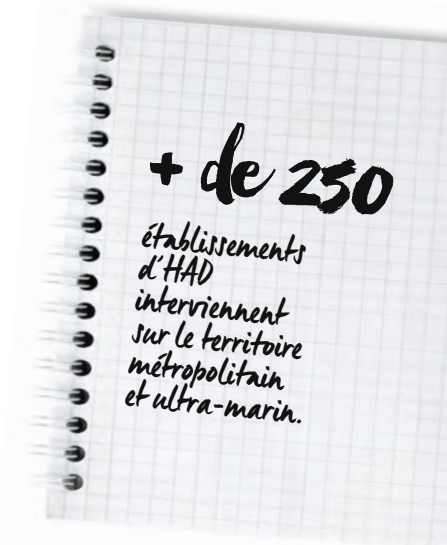 + de 250
établissements
d'HAD
interviennent
sur le territoire
métropolitain
et ultra-marin.